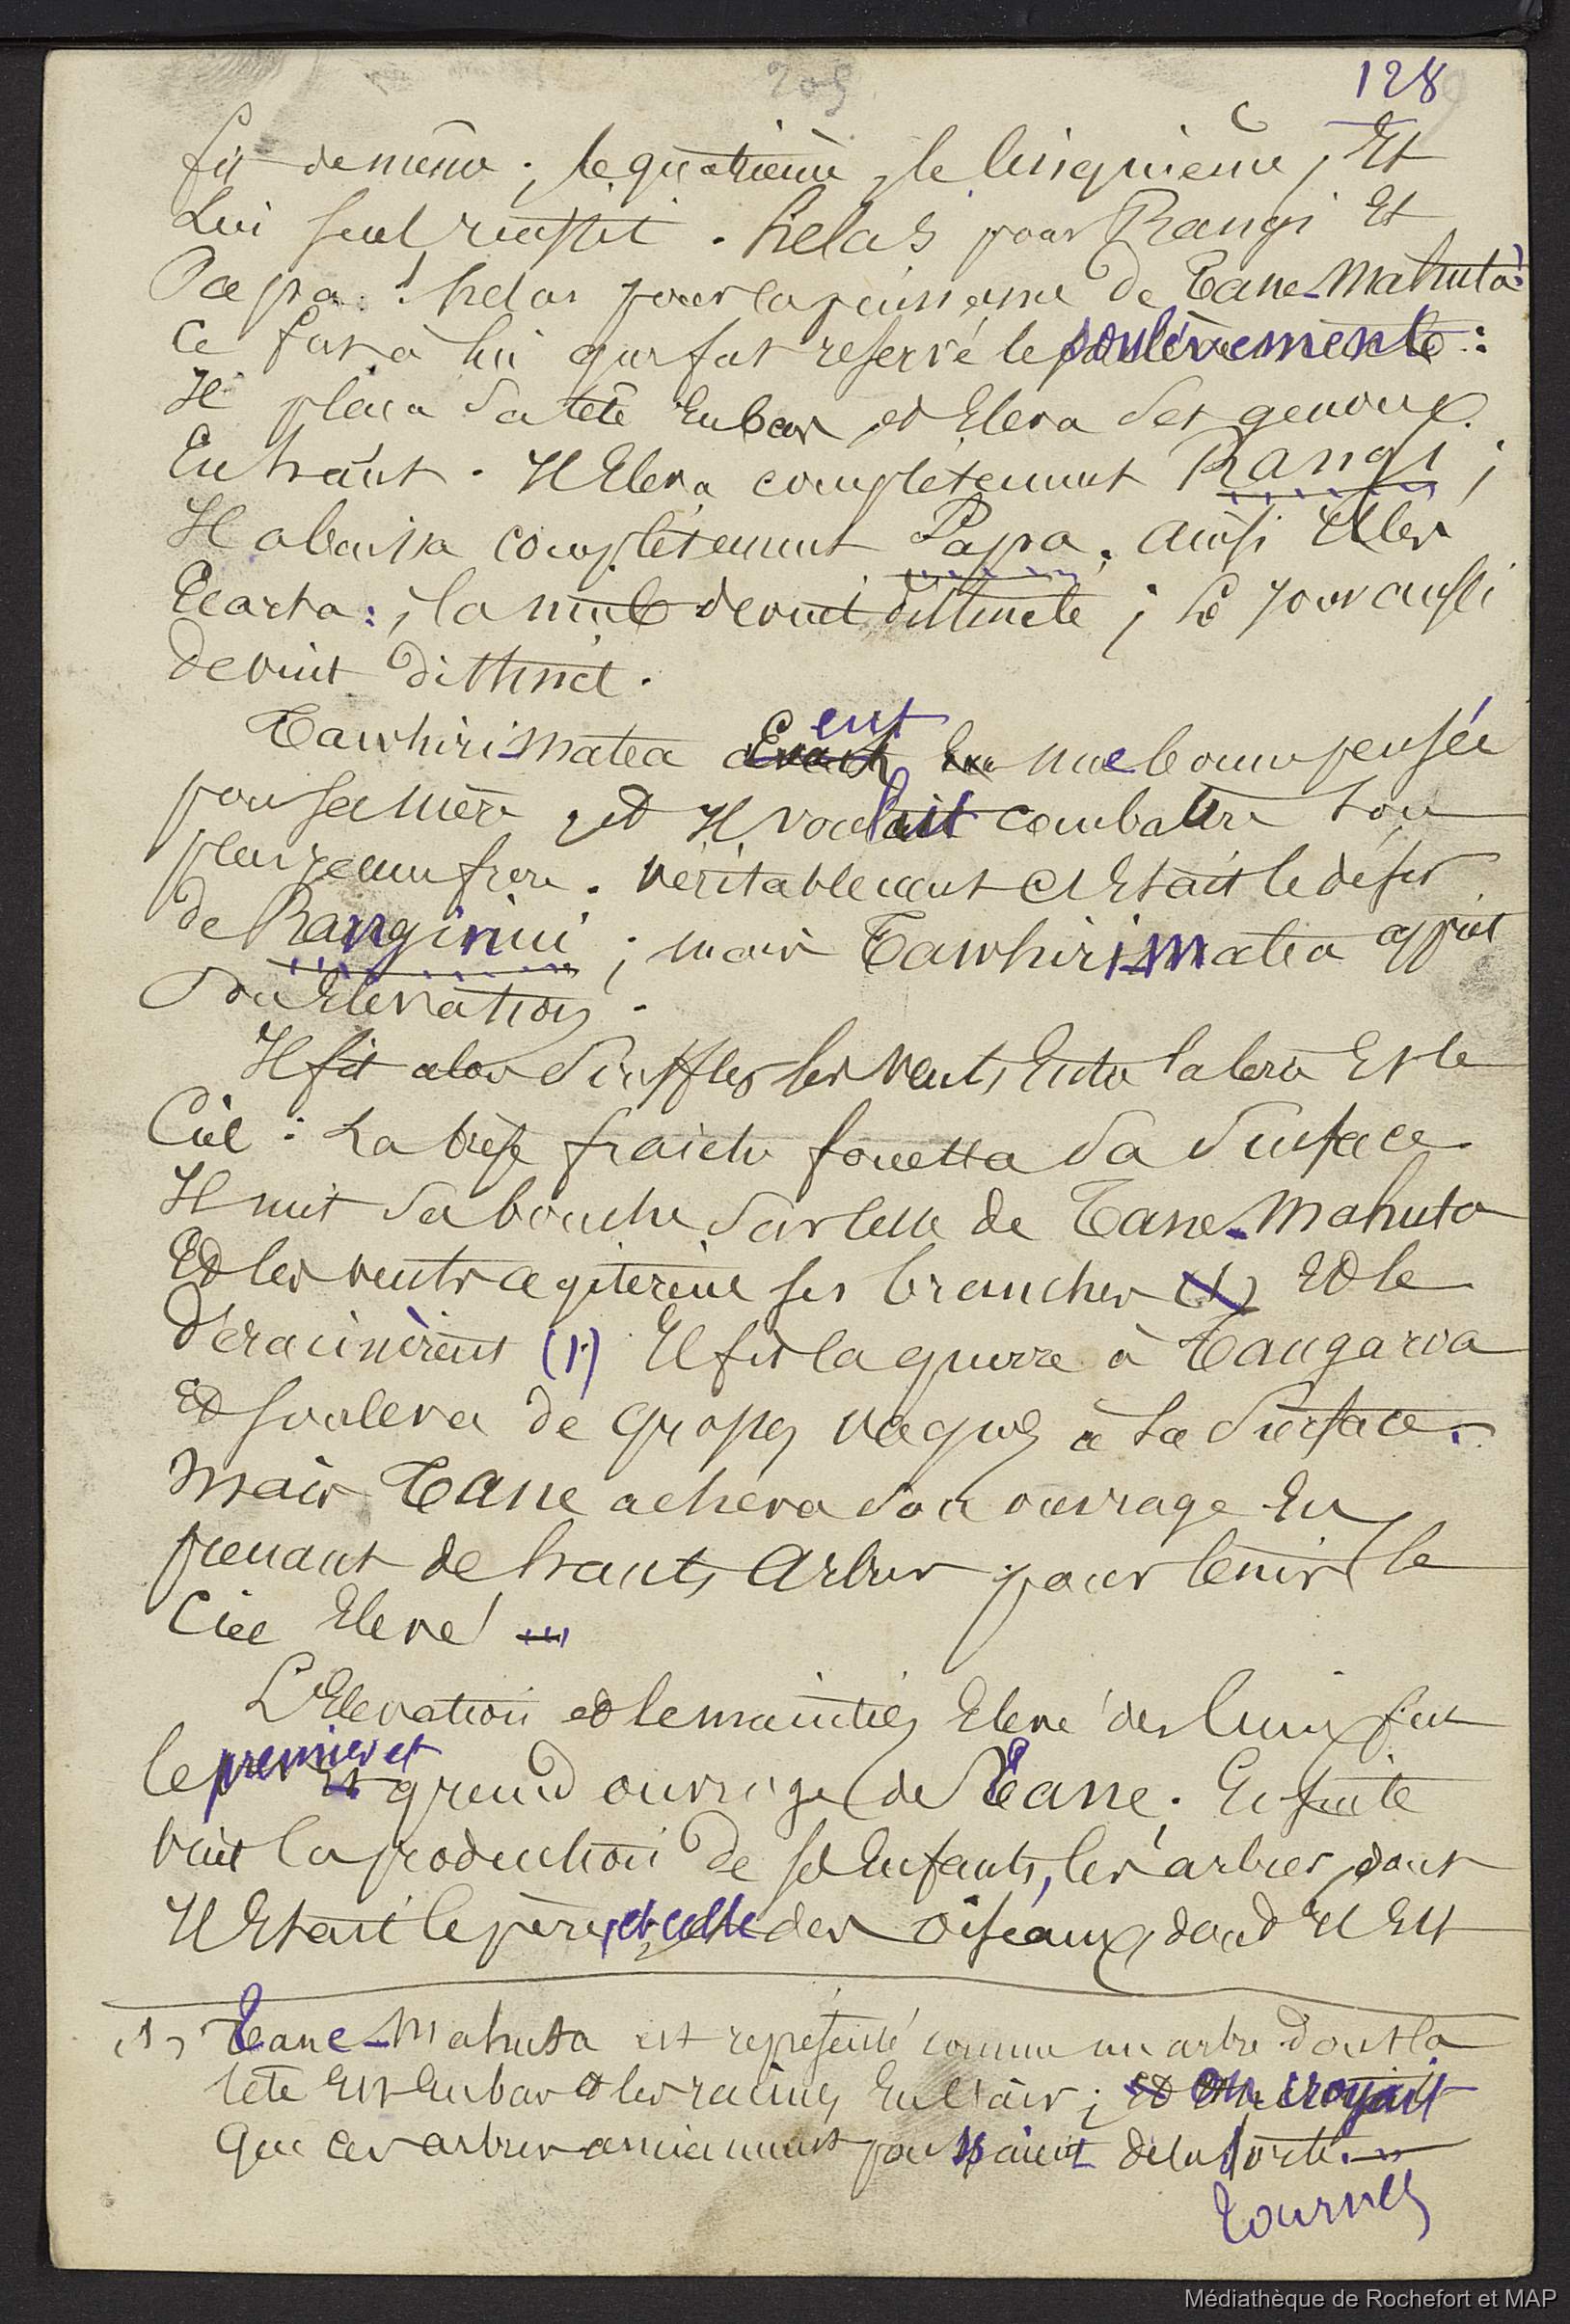 205
128
fit de même ; le quatrième, le cinquième ; Et
Lui seul réussit. helas pour Rangi Et
Papa ! helas pour la puissance de Tane-Mahuta :
Ce fut à lui que fut reservé le soulèvement :
Il plaça sa tête En bas et Eleva ses genoux
En haut. Il Eleva complètement Rangi ;
Il abaissa complètement Papa. ainsi Il les
Ecarta : ; la nuit devint distincte ; Le jour aussi
devint distinct.
Tawhirimatea eut une bonne pensée
pour sa mère, et Il voulait combattre Son
plus jeune frère. véritablement C'Etait le désir
de Ranginui ; mais Tawhirimatea apprit
Son Elevation.
Il fit alors Souffler les vents Entre la terre Et le
Ciel : La brise fraiche fouetta Sa Surface
Il mit Sa bouche Sur celle de Tane-Mahuta
Et les vents agitèrent ses branches (1) Et le
Déracinèrent (1) Il fit la guerre à Tangaroa
Et souleva de grosses vagues à Sa Surface.
Mais Tane acheva Son ouvrage En
prenant de hauts Arbres pour tenir le
Ciel Elevé
L'Elevation et le maintien Elevé des Cieux fut
le premier et grand ouvrage de Tane. Ensuite
vint la production de ses Enfants, les arbres, dont
Il Etait le père, et celle des oiseaux, dont Il Est
(1) Tane-Mahuta est représenté comme un arbre dont la
tête Est En bas et les racines En l'air ; on croyait
Que ces arbres anciennement poussaient de la sorte.
Tournez
Médiathèque de Rochefort et MAP